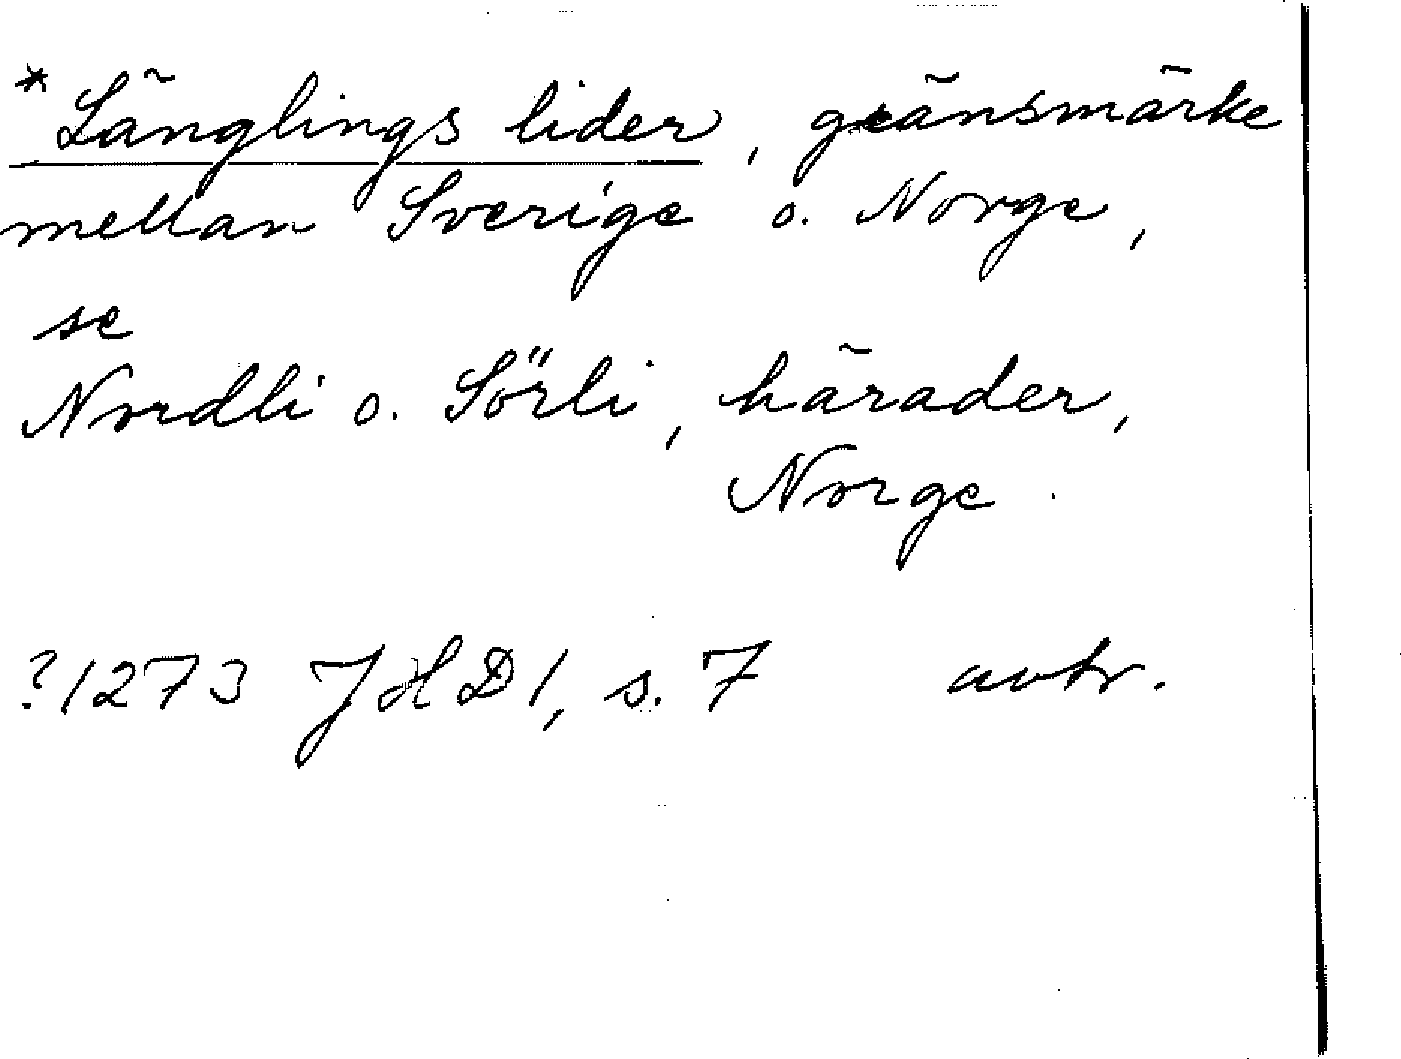 *Länglings lider, gränsmärke
mellan Sverige o. Norge,
se
Nordli o. Sörli, härader,
Norge.
?1273 JHD1, s. 7 avtr.